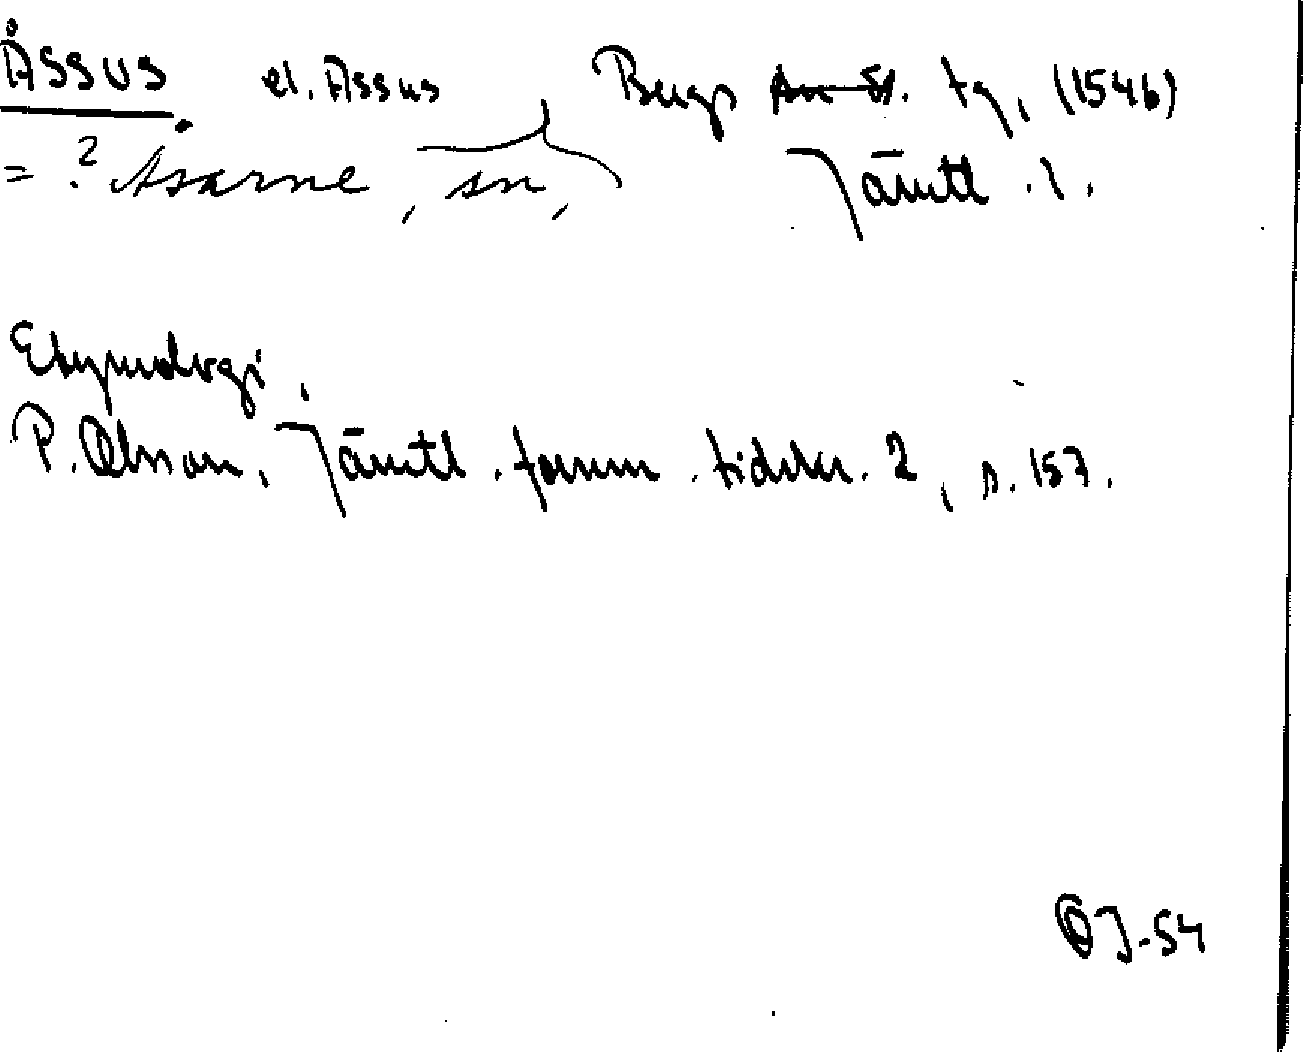 ÅSSUS. el. Assus Bergs tg, (1546)
= ? Åsarne, sn, Jämtl. l.
Etymologi,
P. Olsson, Jämtl. fornm. tidskr. 2, s. 157.
OJ-54